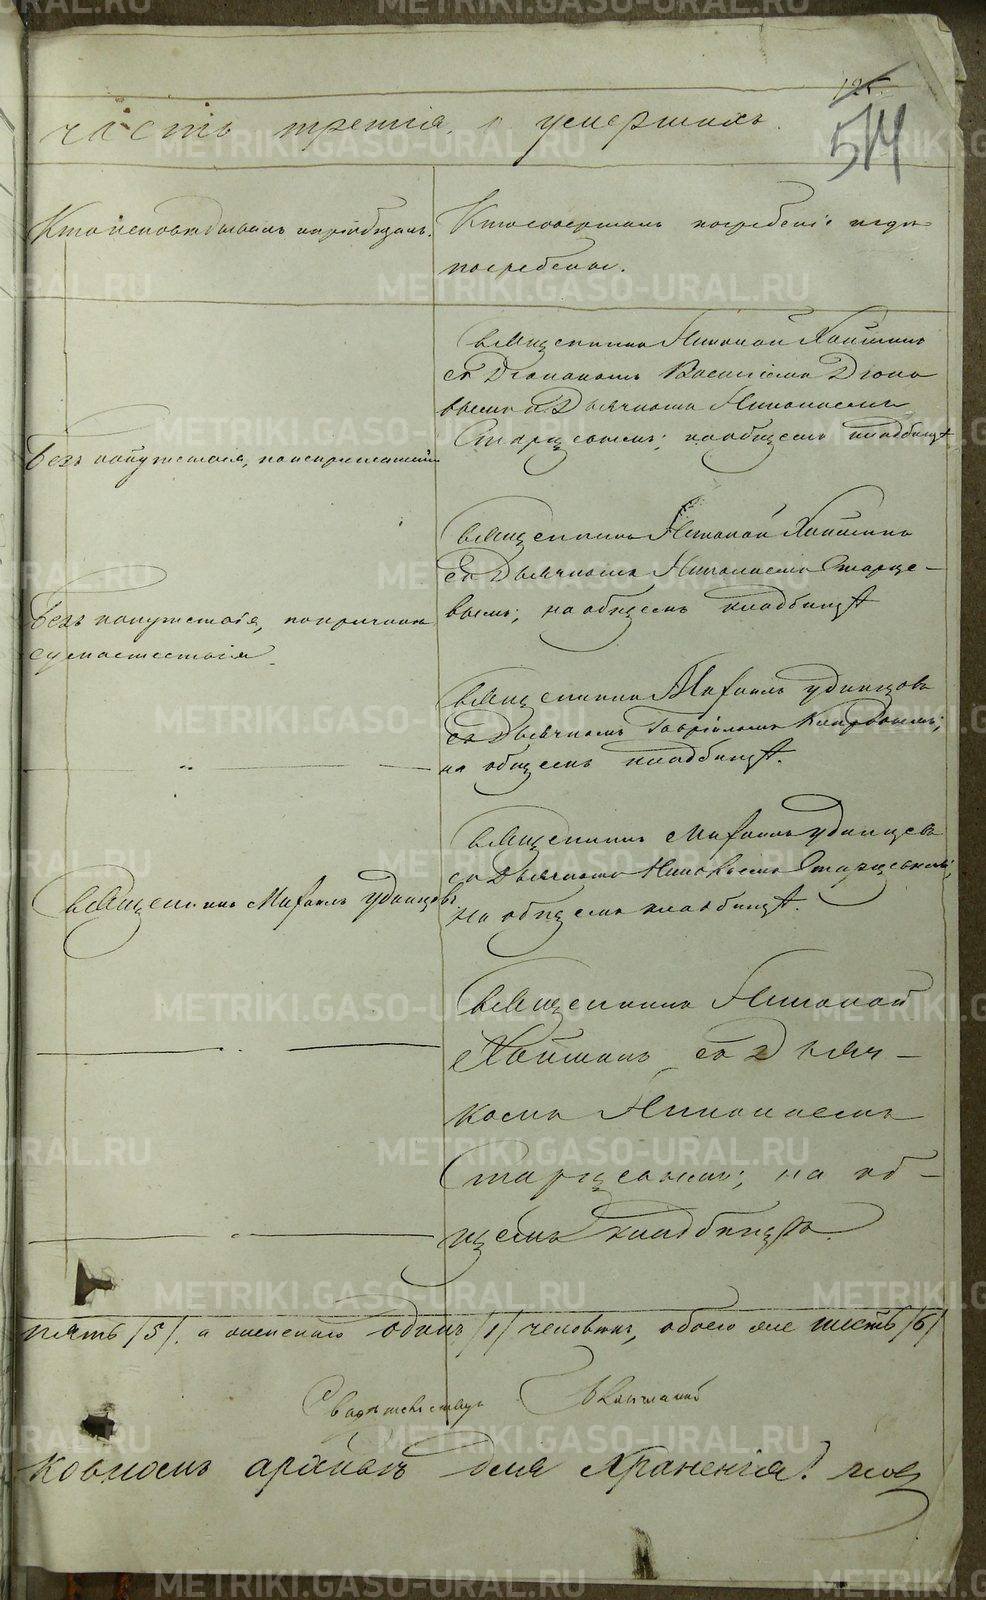 125.
514
часть третія, о умершихъ.
Кто исповѣдывалъ и пріобщалъ.
Кто совершалъ погребеніе и гдѣ
погребены.
Священникъ Николай
съ Діакономъ Василіемъ
и Дьячкомъ Николаемъ
Старцевымъ; на общемъ кладбищѣ
Безъ напутствія, по
Священникъ Николай
съ Дьячкомъ Николаемъ Старце-
вымъ; на общемъ кладбищѣ
Безъ напутствія, по причинѣ
сумасшествія.
Священникъ Михаилъ Удинцовъ
съ Дьячкомъ Гавріиломъ
на общемъ кладбищѣ.
— „ —
Священникъ Михаилъ Удинцевъ
съ Дьячкомъ Николаемъ Старцевымъ;
на общемъ кладбищѣ.
Священникъ Михаилъ Удинцовъ
Священникъ Николай
съ Дьяч-
комъ Николаемъ
Старцевымъ; на об-
щемъ кладбищѣ.
— „ —
— „ —
пять /5/, а женскаго одинъ /1/ человѣкъ, обоего же шесть /6/
ковномъ архивѣ для храненія.
METRIKI.GASO-URAL.RU